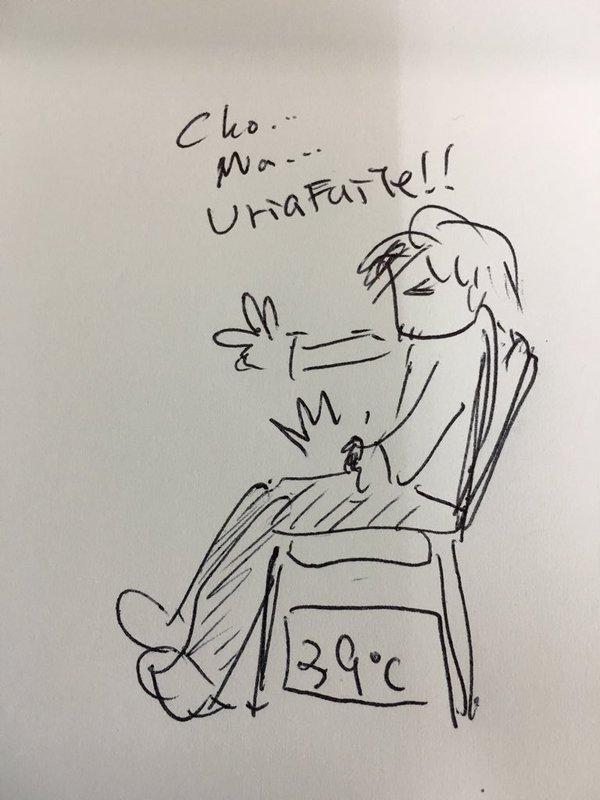 Cho...
Ma...
UriaFuiTe!!
39°C